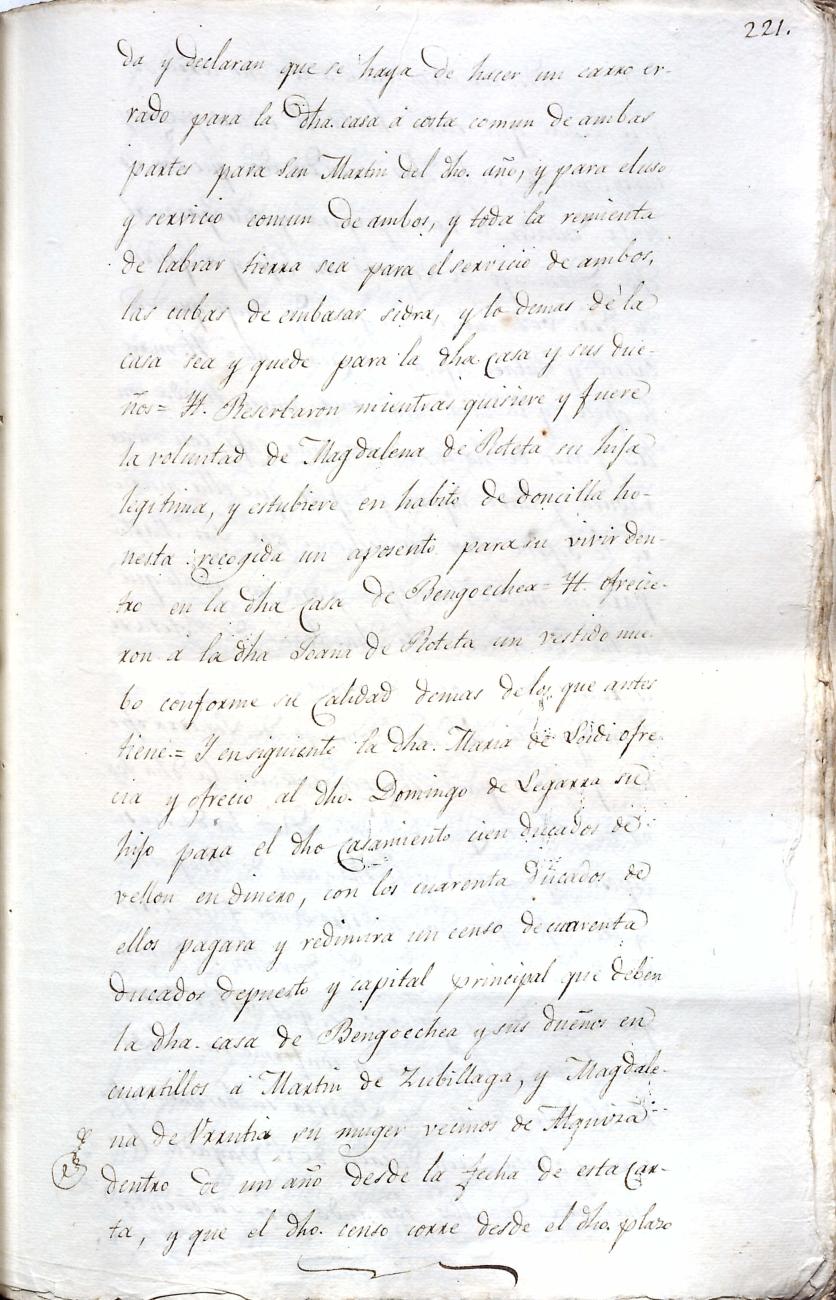 221.
da y declaran que se haya de hacer un carro er-
rado para la dha. casa á costa comun de ambas
partes para San Martin del dho. año, y para el uso
y servicio comun de ambos, y toda la remienta
de labrar tierra sea para el servicio de ambos,
las cubas de embasar sidra, y lo demas de la
casa sea y quede para la dha casa y sus due-
ños= Yt. Reserbaron mientras quisiere y fuere
la voluntad de Magdalena de Roteta su hija
legitima, y estubiere en habito de doncilla ho-
nesta recogida un aposento para su vivir den-
tro en la dha Casa de Bengoechea= Yt. ofrecie-
ron á la dha Joana de Roteta un vestido nue-
bo conforme su Calidad demas de los que antes
tiene.= Y en siguiente la dha. Maria de Loidi ofre-
cia y ofrecio al dho. Domingo de Legarra su
hijo para el dho casamiento cien ducados de
vellon en dinero, con los cuarenta ducados de
ellos pagara y redimira un censo de cuarenta
ducados depuesto y capital principal que deben
la dha. casa de Bengoechea y sus dueños en
cuartillos á Martin de Zubillaga, y Magdale-
na de Urrutia su muger vecinos de Alquiza
dentro de un año desde la fecha de esta Car-
ta, y que el dho. censo corre desde el dho. plazo